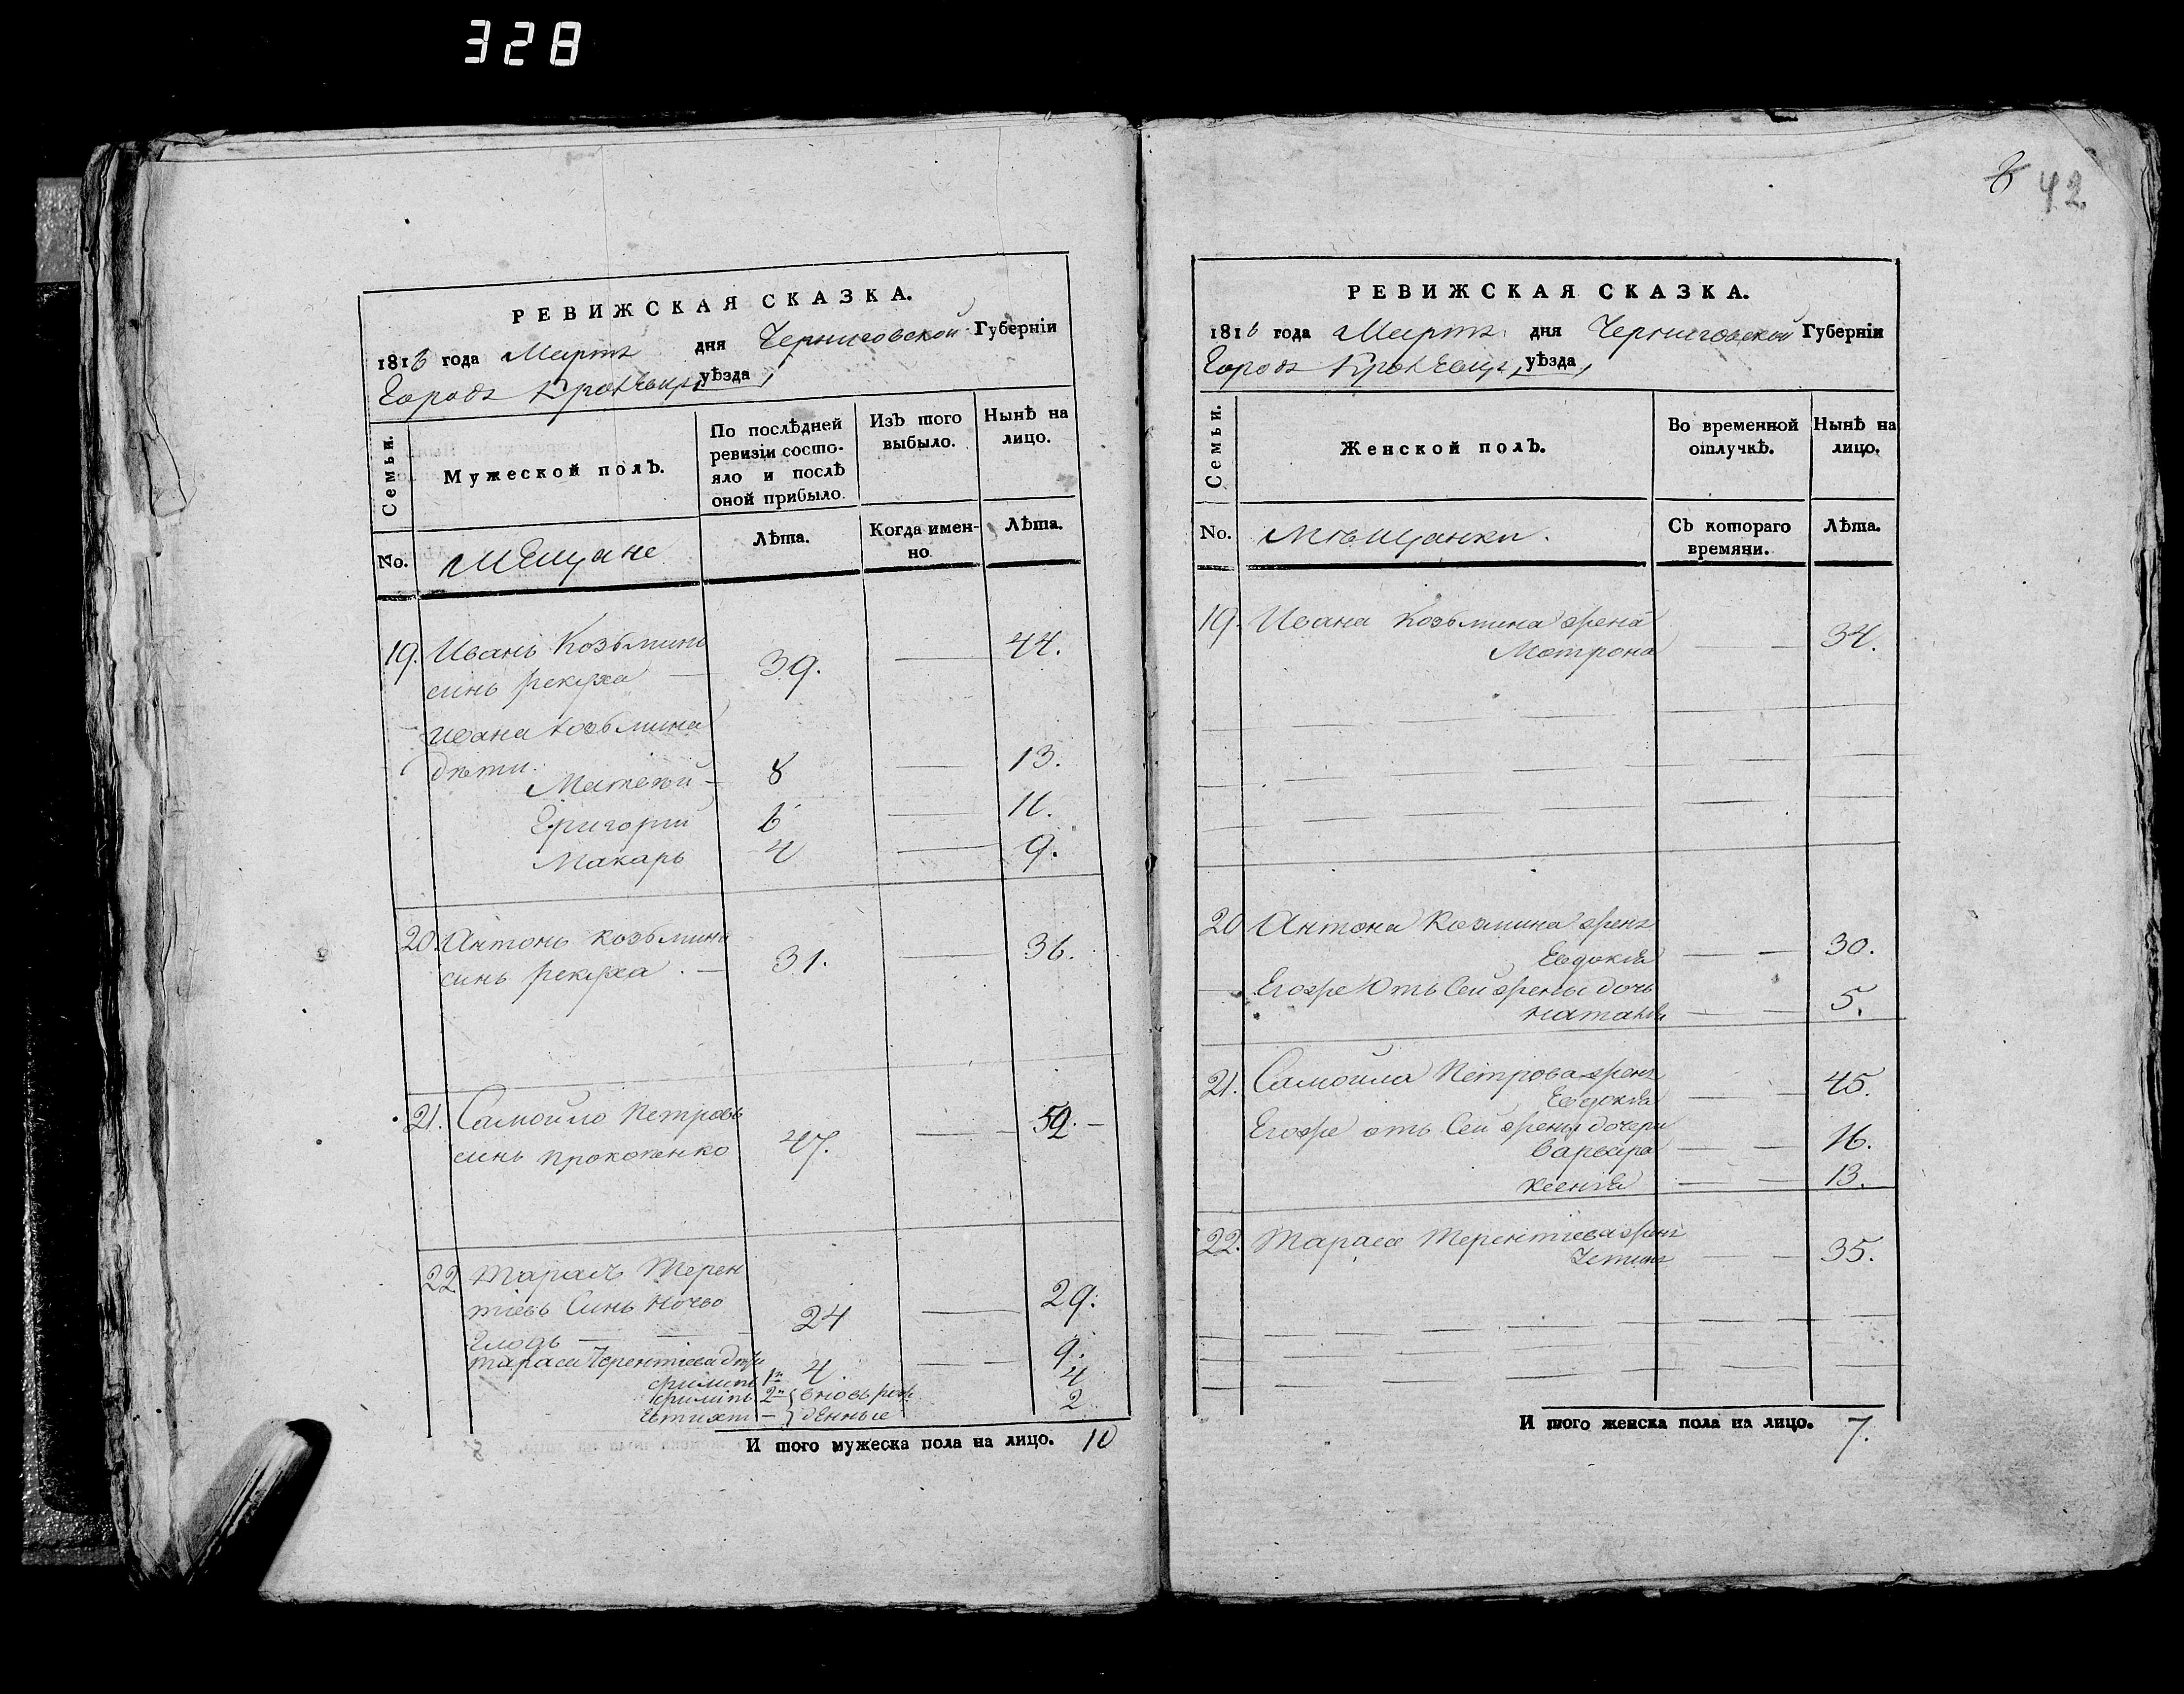 328
42
РЕВИЖСКАЯ СКАЗКА.
1816 года Мартъ дня Черниговской Губерніи
Городъ Кролевецъ уѣзда
Семьи.
Мужеской полъ.
По послѣдней ревизіи состо-
яло и послѣ
оной прибыло.
Изъ того
выбыло.
Нынѣ на
лицо.
No.
Мещане
Лѣта.
Когда имен-
но
Лѣта.
19. Иванъ Козьминъ
синъ 39. 44.
Ивана Козьмина
дѣти
Матвѣй 8 13.
Григорий 6 11.
Макаръ 4 9.
20. Антонъ Козьминъ
синъ 31. 36.
21. Самойло Петровъ
синъ Прокопенко 47. 52.
22 Тарасъ Терен
тіевъ Синъ 24 29.
Тараса Терентіева дѣти
Филипъ 1й 4. 9.
Филипъ 2й вновь рож 4
Евтихъ денные 2
И того мужеска пола на лицо. 10
РЕВИЖСКАЯ СКАЗКА.
1816 года Мартъ дня Черниговской Губерніи
Городъ Кролевецъ уѣзда
Семьи.
Женской полъ.
Во временной
отлучкѣ.
Нынѣ на
лицо.
No.
Мѣщанки.
Съ котораго
времяни.
Лѣта.
19. Ивана Козьмина жена
Мотрона 34.
20 Антона Козмина жена
Евдокія 30.
Егоже отъ Сей жены дочь
Наталія 5.
21. Самойла Петрова жена
Евдокія 45.
Егоже отъ Сей жены дочери
Варвара 16.
Ксенія 13.
22. Тараса Терентіева жена
35.
И того женска пола на лицо. 7.